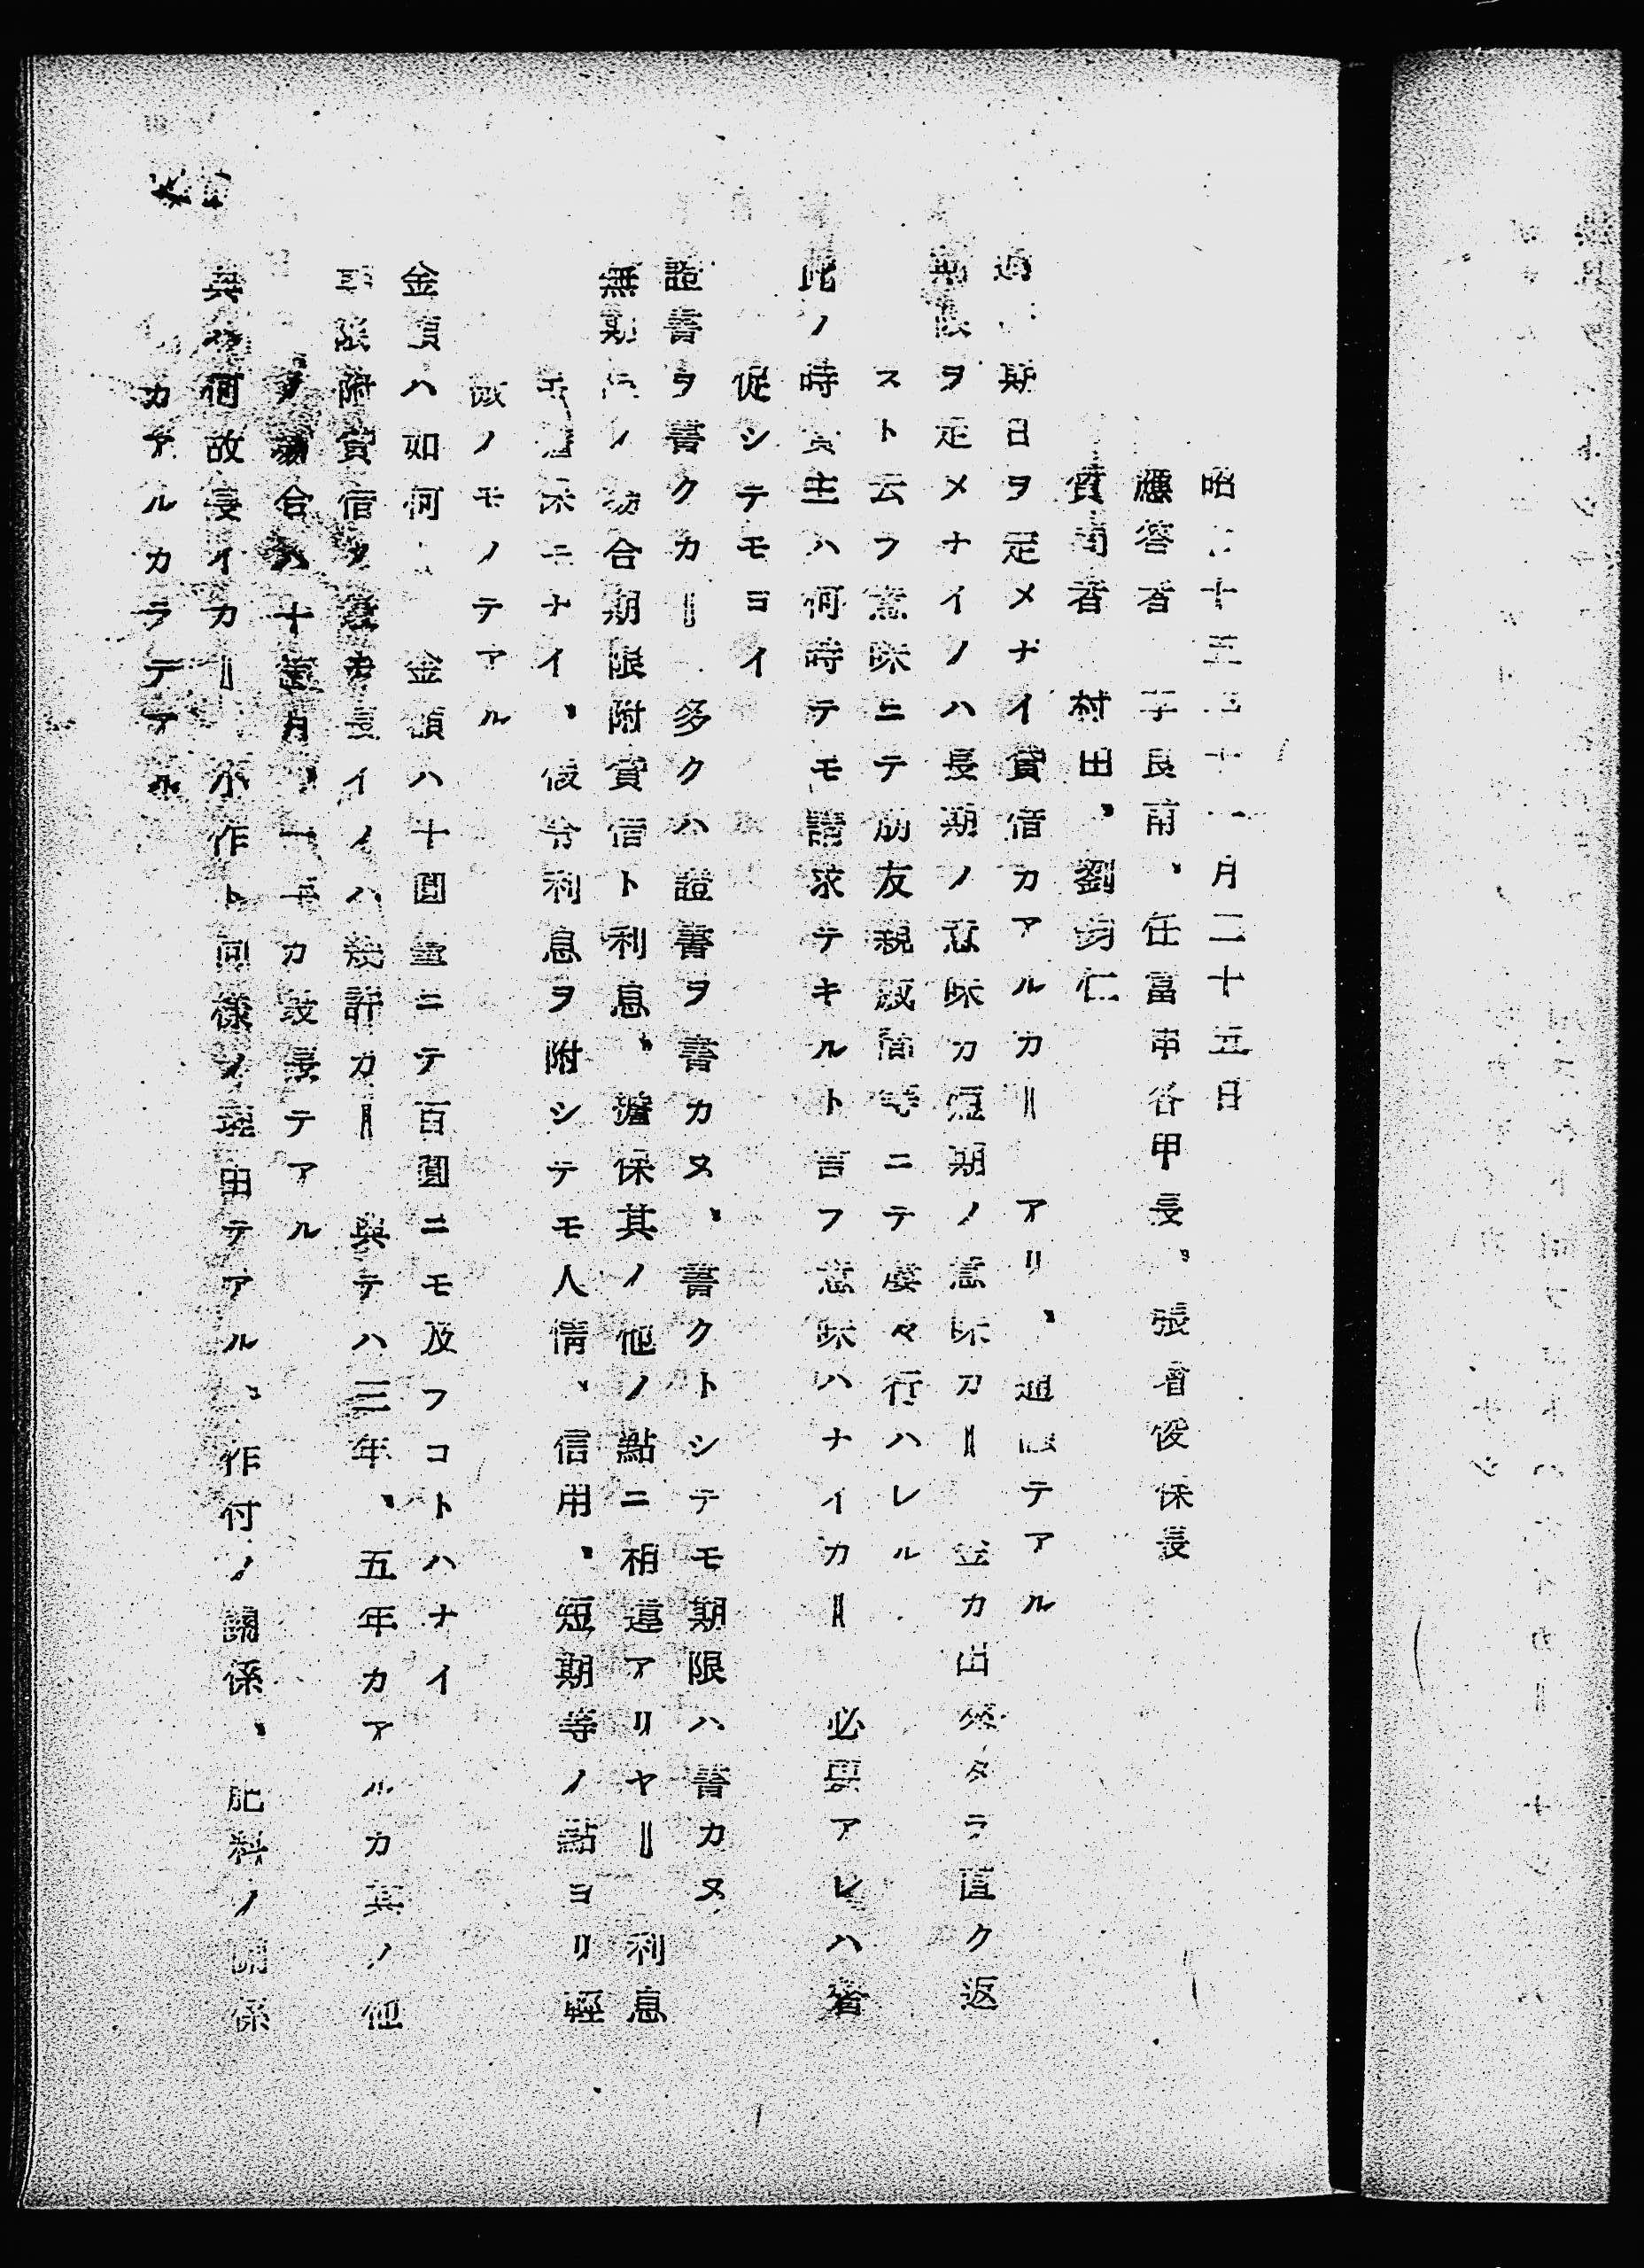 昭和十五年十一月二十五日
應答者 李良甫、任富申各甲長、張香俊保長
質問者 村田、劉鈞仁
期日ヲ定メナイ貸借カアルカ‖ アリ、通祖テアル
期限ヲ定メナイノハ長期ノ意味カ短期ノ意味カ‖ 金カ出來タラ直ク返
スト云フ意味ニテ朋友親戚間等ニテ屡々行ハレル
此ノ時貸主ハ何時テモ請求テキルト言フ意味ハナイカ‖ 必要アレハ督
促シテモヨイ
證書ヲ書クカ‖ 多クハ證書ヲ書カヌ、書クトシテモ期限ハ書カヌ
無期限ノ場合期限附貸借ト利息、擔保其ノ他ノ點ニ相違アリヤ‖ 利息
ニナイ、假令利息ヲ附シテモ人情、信用、短期等ノ點ヨリ輕
ノモノテアル
金額ハ如何‖ 金額ハ十圓位ニテ百圓ニモ及フコトハナイ
期限附貸借ノ最モ長イノハ幾許カ‖ 典テハ三年、五年カアルカ其ノ他
ノ場合ハ十箇月、一年カ最長テアル
典ハ何故長イカ‖ 小作ト同樣ノ理由テアル、作付ノ關係、肥料ノ關係
カアルカラテアル